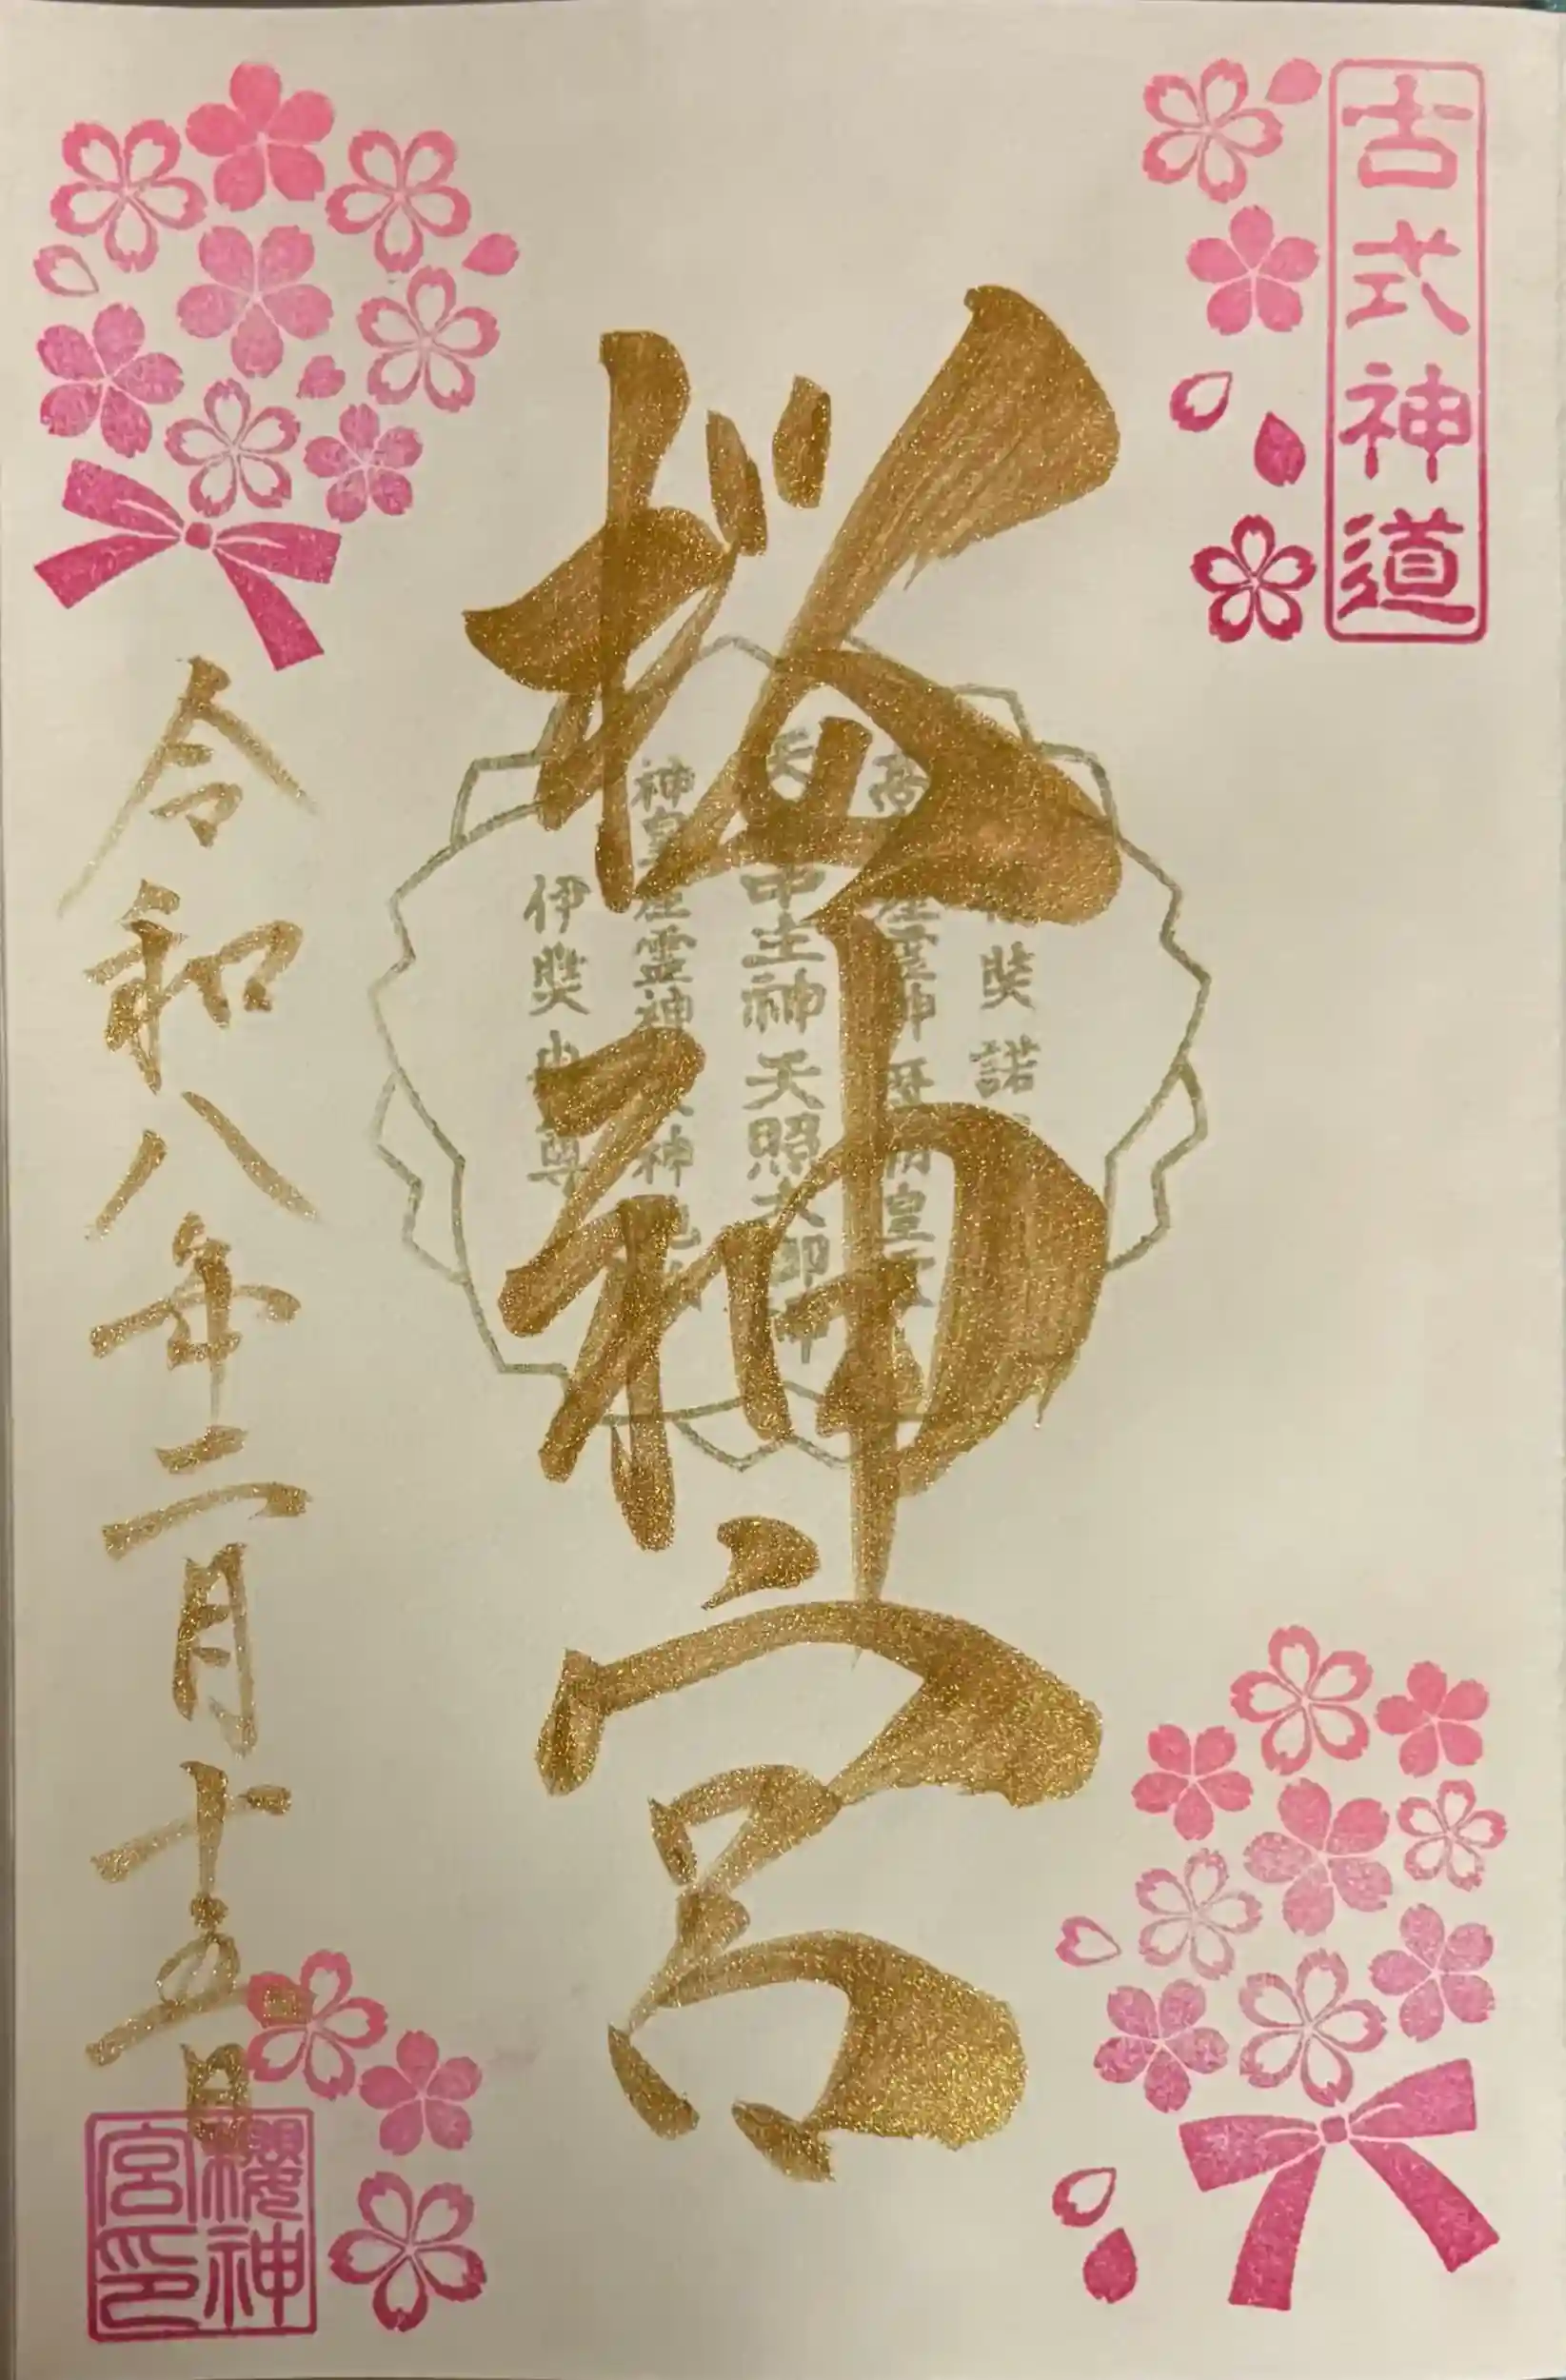 古式神道
桜神宮
奘諾
天 中主神 天照大御神
神皇産霊神
伊奘 尊
令和八年二月十五日
櫻神宮印